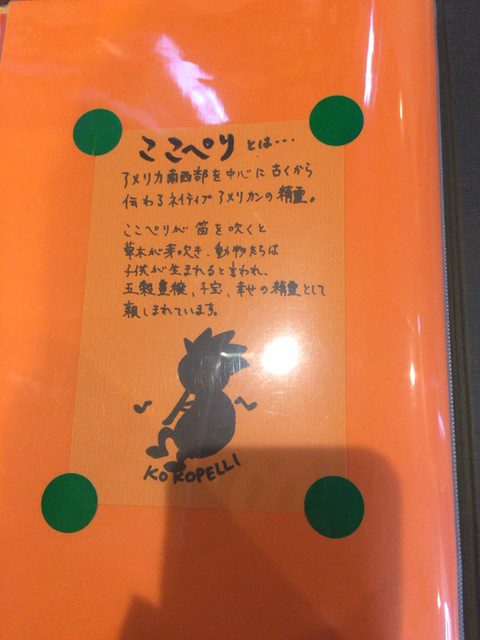 ここぺりとは・・・
アメリカ南西部を中心に古くから
伝わるネイティブアメリカンの精霊。
ここぺりが笛を吹くと
草木が芽吹き、動物たちは
子供が生まれると言われ、
五穀豊穣、子宝、幸せの精霊として
親しまれています。
KOKOPELLI